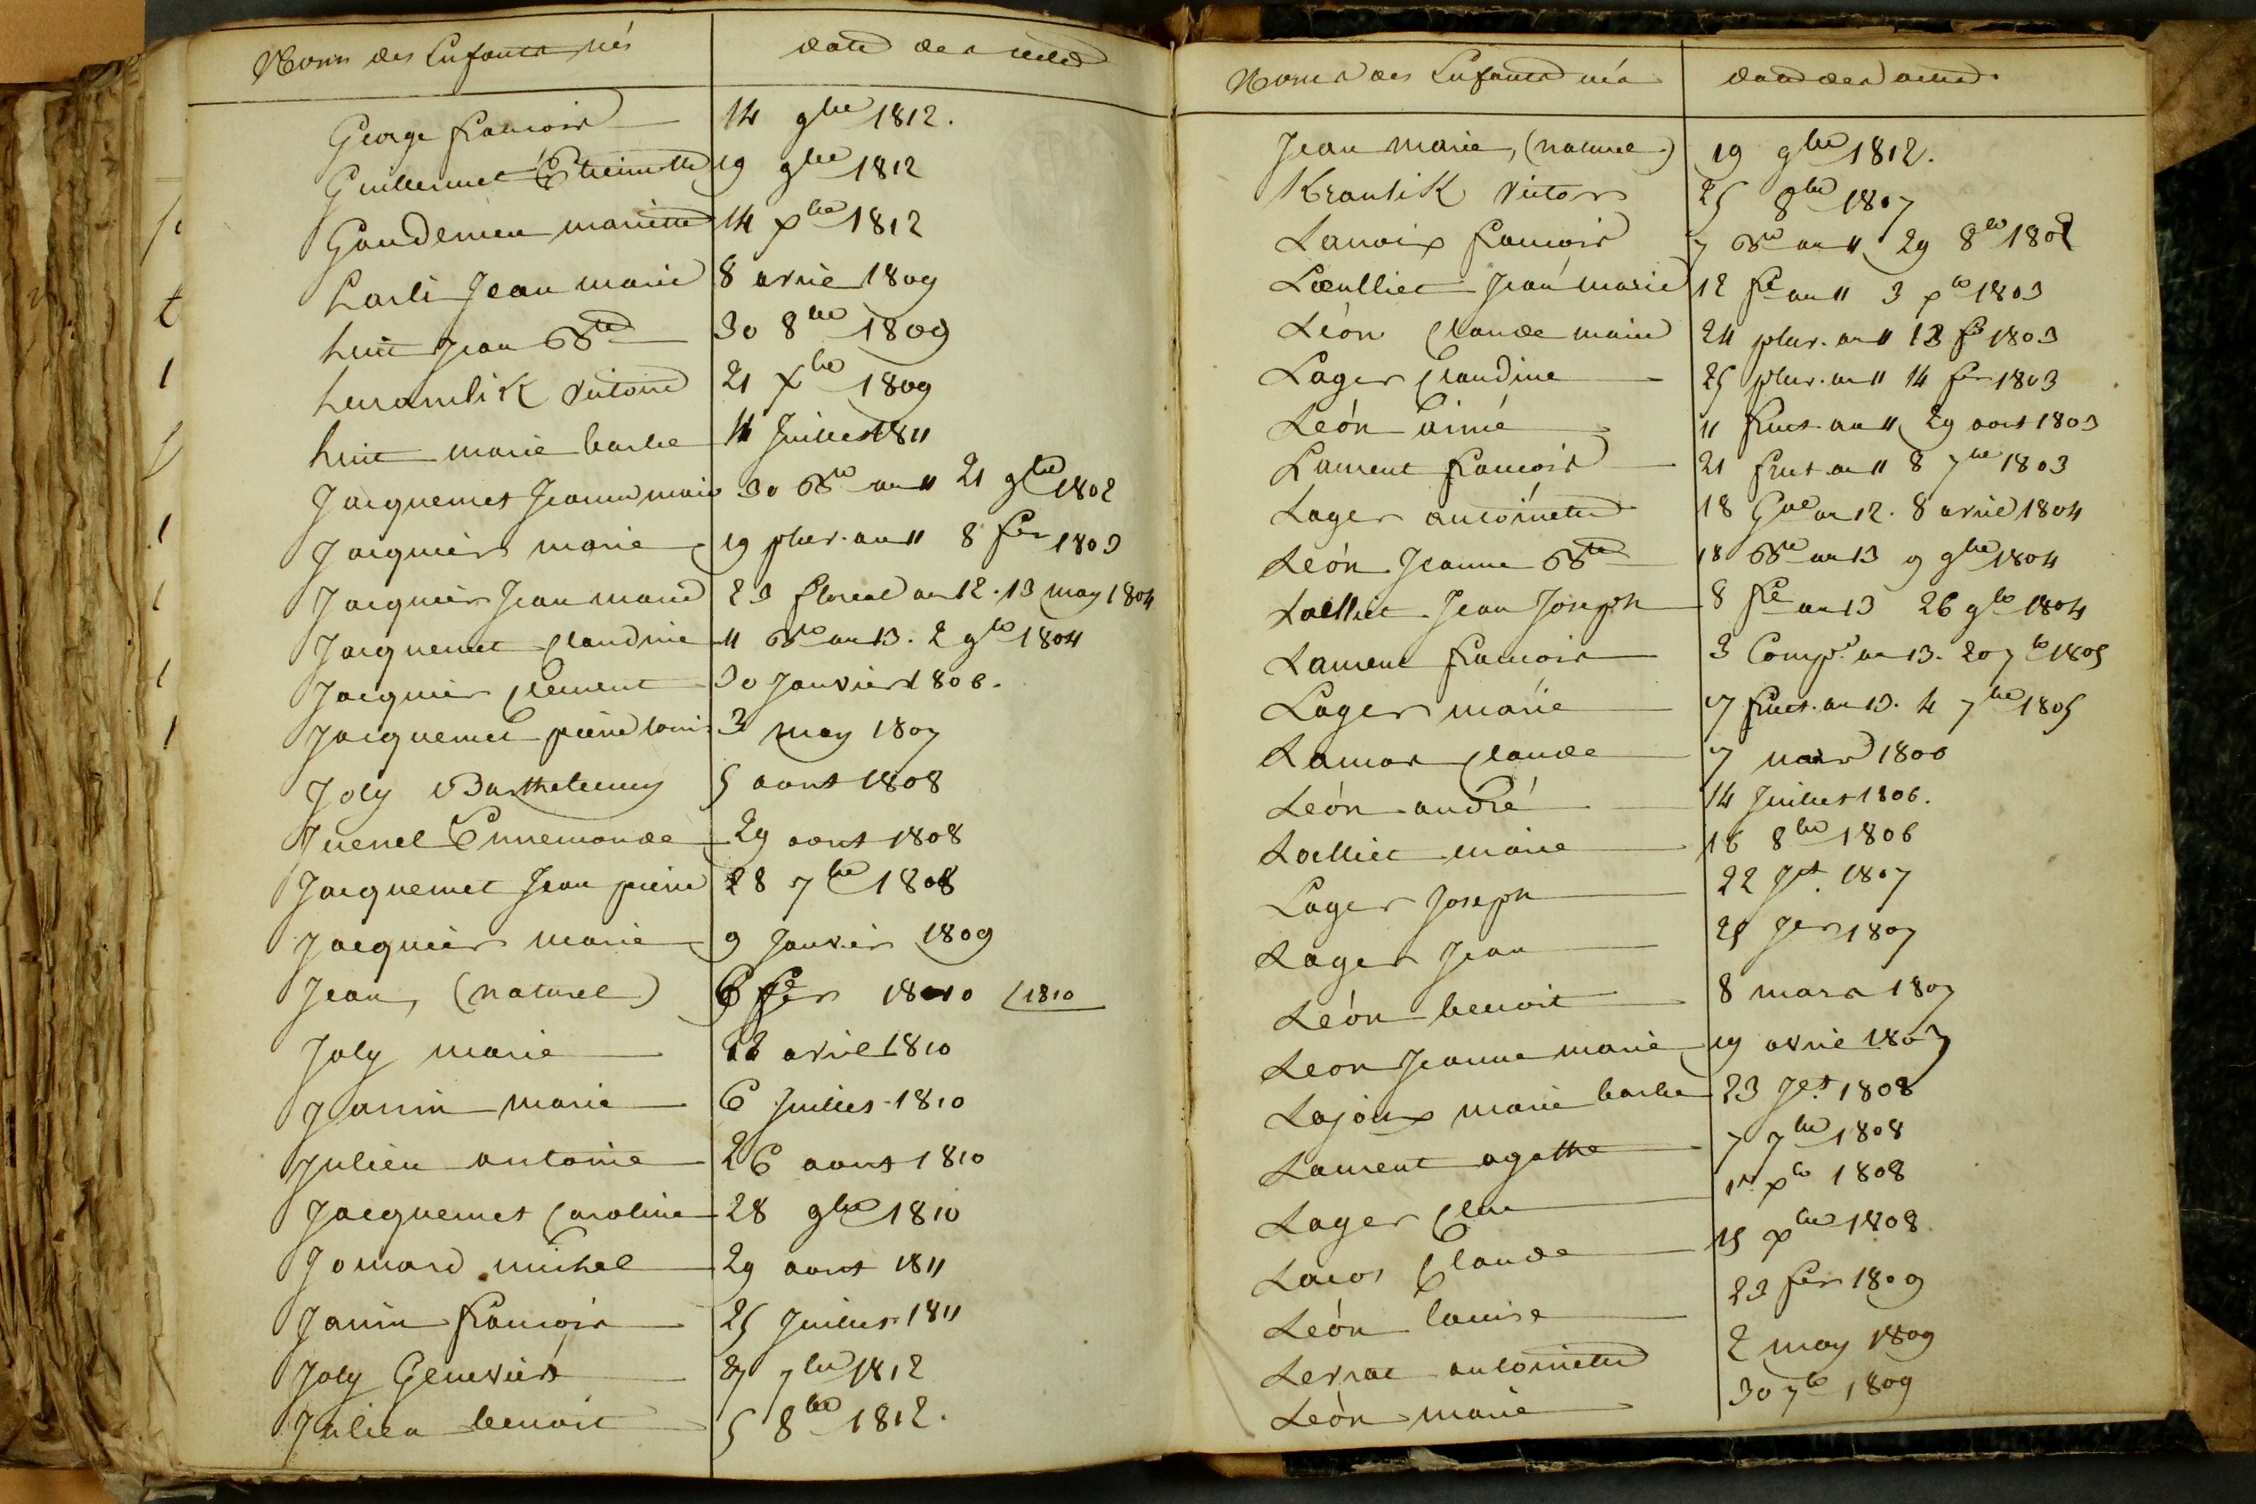 Noms des Enfants nés date des actes
George francois 14 9bre 1812.
Guillermet Etiennette 19 9bre 1812
Gaudemen mariette 14 xbre 1812
harli Jean marie 8 avril 1809
huit Jean Bte 30 8bre 1809
victoire 21 xbre 1809
huit marie barbe 14 Juillet 1811
Jacquemet Jeanne marie 30 Bre an 11 21 9bre 1802
Jacquier marie 19 pluv. an 11 8 fer 1803
Jacquier Jean marie 23 floreal an 12. 13 may 1804
Jacquemet claudine 11 Bre an 13. 2 9bre 1804
Jacquier clement 30 Janvier 1806.
Jacquemet pierre louis 3 may 1807
Joly Barthelemy 5 aout 1808
Juenel Ennemonde 29 aout 1808
Jacquemet Jean pierre 28 7bre 1808
Jacquier marie 9 Janvier 1809
Jean, (naturel) 6 fer 1810 1810
Joly marie avril 1810
Janin marie 6 Juillet 1810
Julien antoine 26 aout 1810
Jacquemet Caroline 28 9bre 1810
Jomard michel 29 aout 1811
Janin francois 25 Juillet 1811
Joly Genevieve 7bre 1812
Julien benoit 5 8bre 1812.
Noms des Enfants nés date des actes
Jean marie, (naturel) 19 9bre 1812.
Kranlik victor 25 8bre 1807
Lanoix francois 7 Bre an 11 29 8bre 1802
Loeulliet Jean marie 12 fre an 11 3 xbre 1803
Léon claude marie 24 pluv. an 11 13 fer 1803
Lager claudine 25 pluv. an 11 14 fer 1803
Léon aimé 11 fruct. an 11 29 aout 1803
Laurent francois 21 fruct. an 11 8 7bre 1803
Lager antoinette 18 Gal an 12. 8 avril 1804
Léon Jeanne Bte 18 Bre an 13 9 9bre 1804
Loelliet Jean Joseph 8 fre an 13 26 9bre 1804
Laurent francois 3 Compre an 13. 20 7bre 1805
Lager marie 17 fruct. an 13. 4 7bre 1805
claude 7 mars 1806
Léon andré 14 Juillet 1806.
Loelliet marie 16 8bre 1806
Lager Joseph 22 Jet. 1807
Lager Jean 25 Jer 1807
Léon benoit 8 mars 1807
Leon Jeanne marie 19 avril 1807
Lajoux marie barbe 23 Jet. 1808
Laurent agathe 7 7bre 1808
Lager xbre 1808
Claude 15 xbre 1808.
Léon louise 23 fer 1809
antoinette 2 may 1809
Léon marie 30 7bre 1809